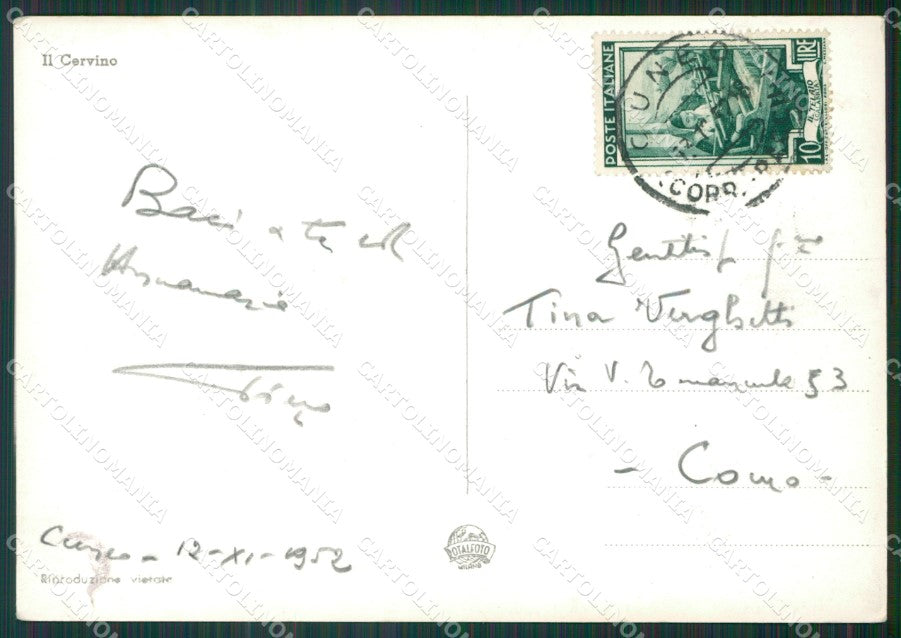 Il Cervino
POSTE ITALIANE
LIRE
10
CUNEO
CORR.
Baci a te ed
Annamaria
Gentilis
Tina Verghetti
Via V. Emanuele 53
- Como -
Cuneo - 12-XI-1952
Riproduzione vietata
ROTALFOTO
MILANO
CARTOLINOMANIA